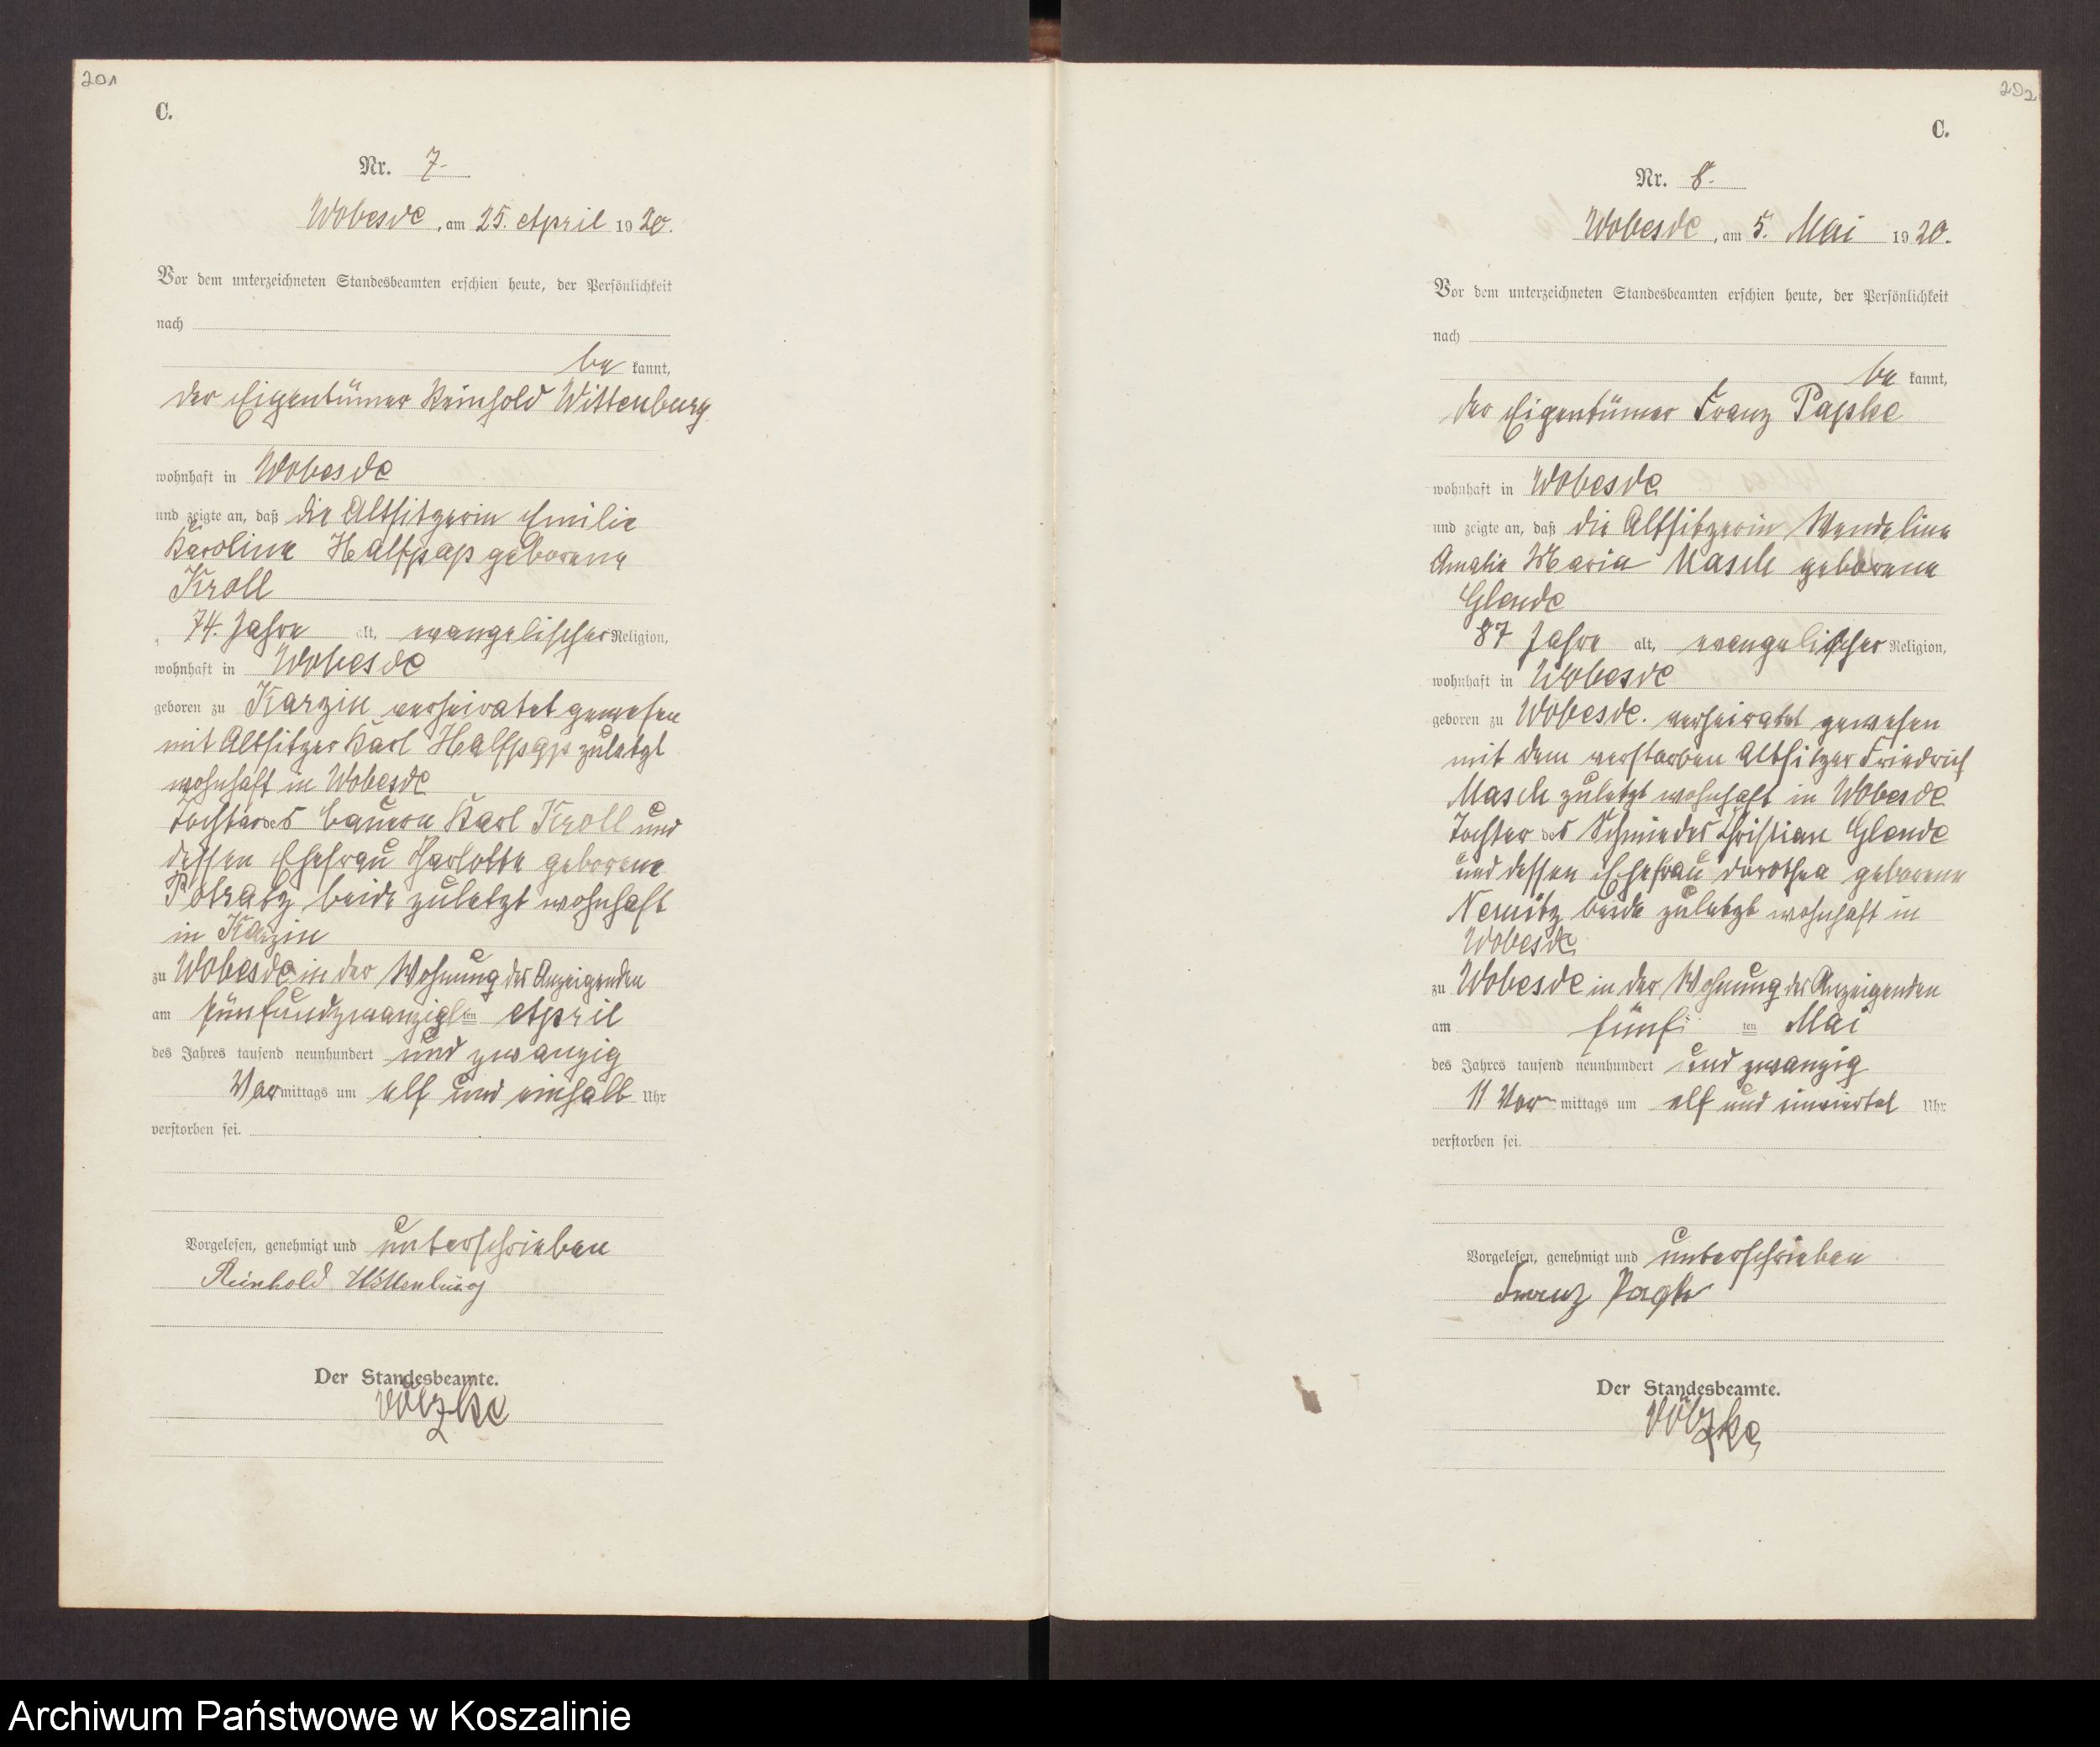 201
C.
Nr. 7.
Wobesde, am 25. April 1920.
Vor dem unterzeichneten Standesbeamten erschien heute, der Persönlichkeit
nach
be kannt,
der Eigentümer Reinhold Wittenburg
wohnhaft in Wobesde
und zeigte an, daß die Altsitzerin Emilie
Karoline Halfpap geborene
Kroll
74. Jahre alt, evangelischer Religion,
wohnhaft in Wobesde
geboren zu Karzin verheiratet gewesen
mit Altsitzer Karl Halfpapp zuletzt
wohnhaft in Wobesde
Tochter des Bauern Karl Kroll und
dessen Ehefrau Charlotte geborene
Potratz beide zuletzt wohnhaft
in Karzin
zu Wobesde in der Wohnung des Anzeigenden
am fünfundzwanzigsten April
des Jahres tausend neunhundert und zwanzig
Vormittags um elf und einhalb Uhr
verstorben sei.
Vorgelesen, genehmigt und unterschrieben
Reinhold Wittenburg
Der Standesbeamte.
Völzke
202
C.
Nr. 8.
Wobesde, am 5. Mai 1920.
Vor dem unterzeichneten Standesbeamten erschien heute, der Persönlichkeit
nach
be kannt,
der Eigentümer Franz Papke
wohnhaft in Wobesde
und zeigte an, daß die Altsitzerin Wendeline
Amalie Maria Masch geborene
Glende
87 Jahre alt, evangelischer Religion,
wohnhaft in Wobesde
geboren zu Wobesde. verheiratet gewesen
mit dem verstorben Altsitzer Friedrich
Masch zuletzt wohnhaft in Wobesde
Tochter des Schmiedes Christian Glende
und dessen Ehefrau Dorothea geborene
Nemitz beide zuletzt wohnhaft in
Wobesde
zu Wobesde in der Wohnung des Anzeigenden
am fünf ten Mai
des Jahres tausend neunhundert und zwanzig
11 Vor mittags um elf und einviertel Uhr
verstorben sei.
Vorgelesen, genehmigt und unterschrieben
Franz Papke
Der Standesbeamte.
Völzke
Archiwum Państwowe w Koszalinie